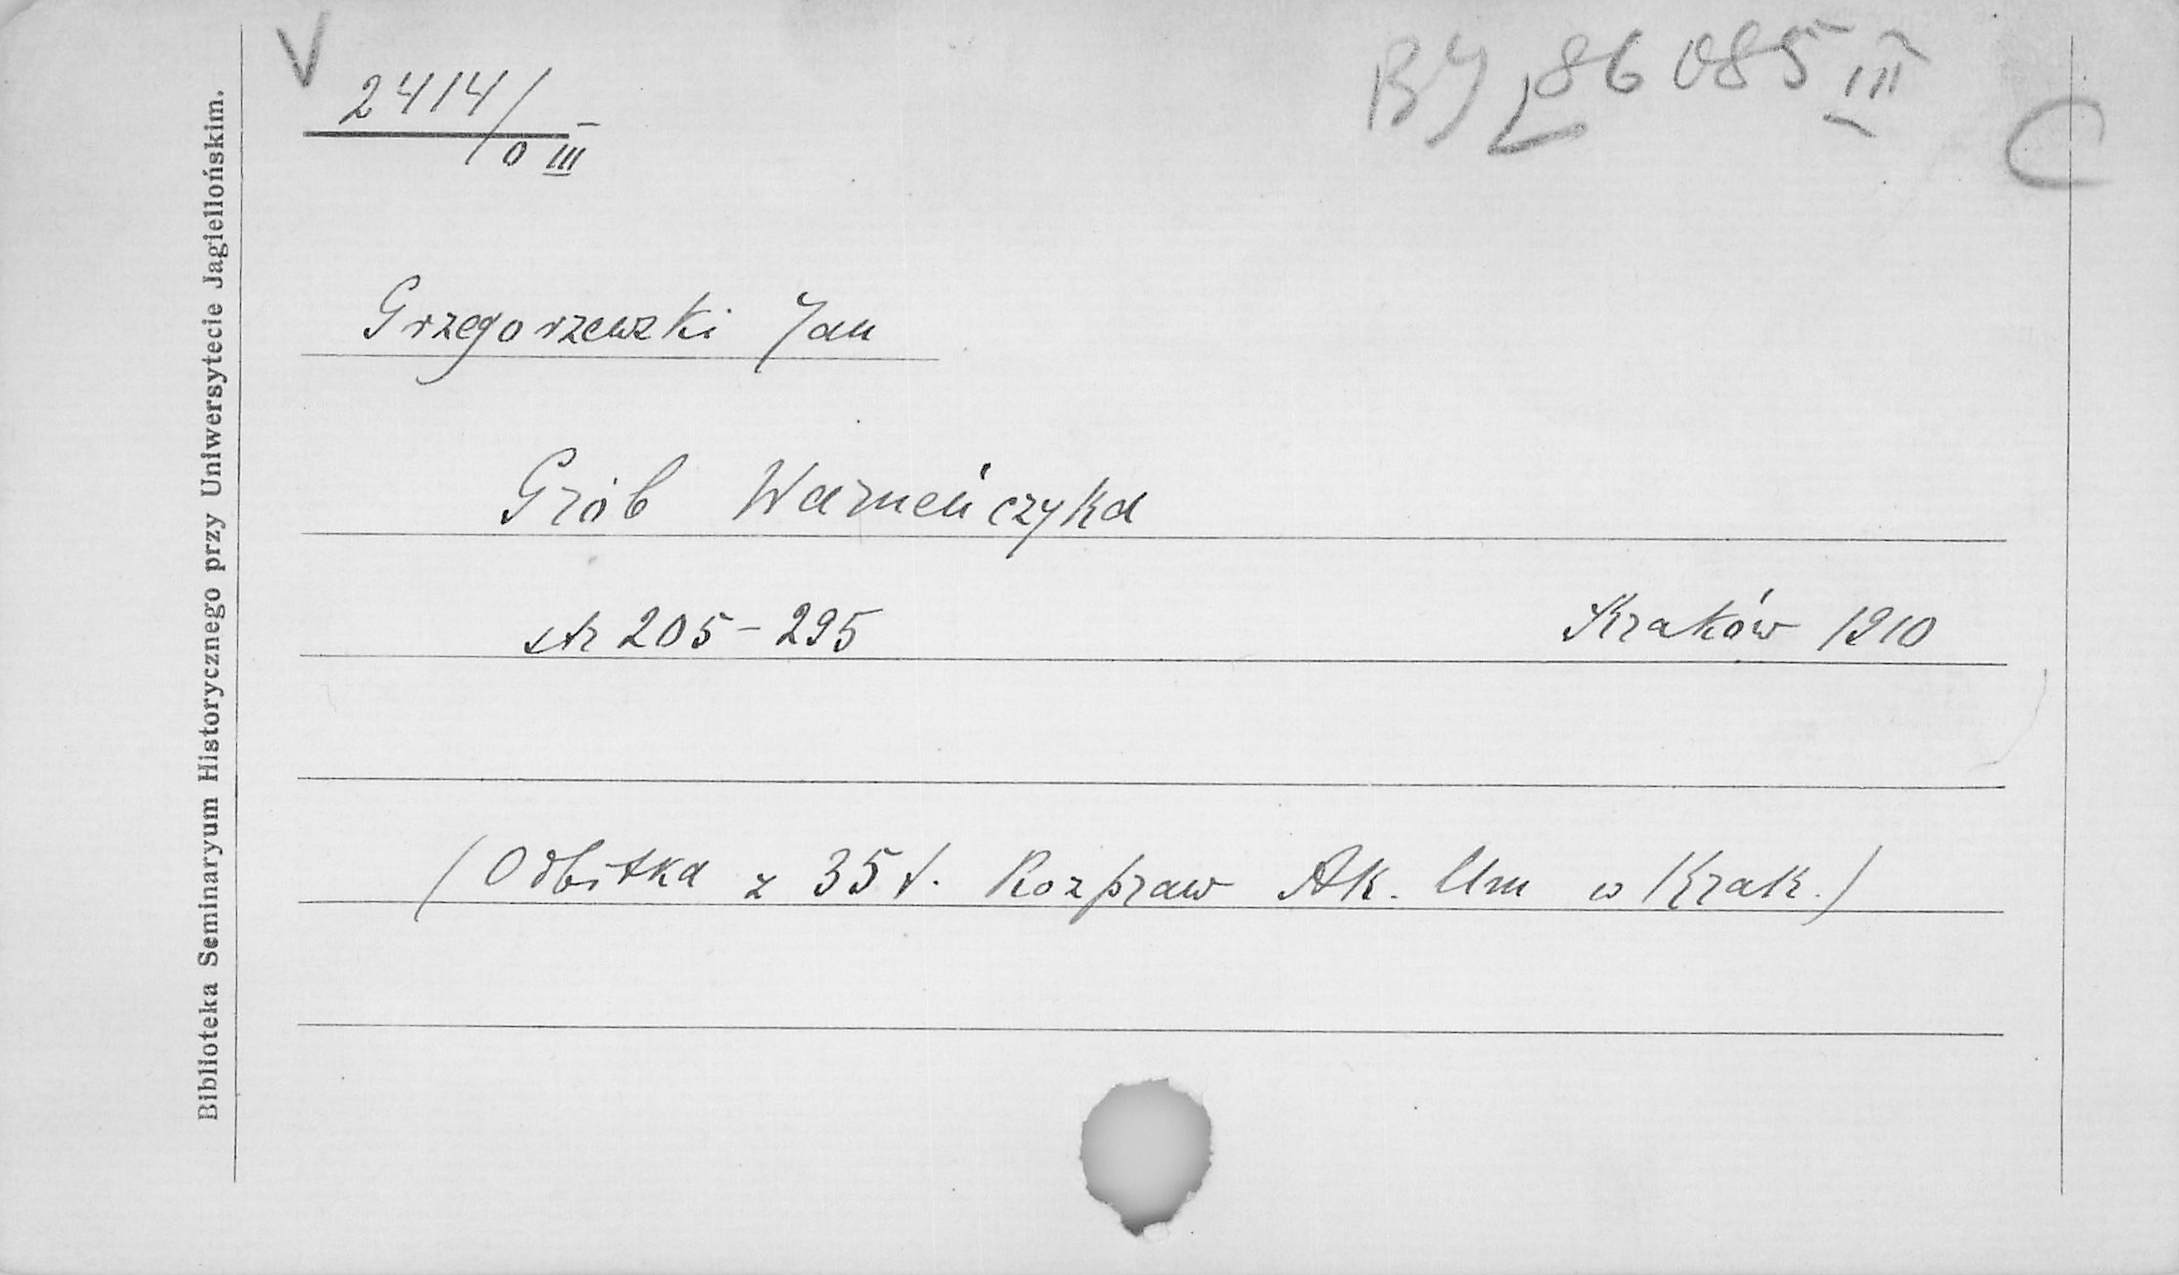 V
2414/0 III
BJ 86085 III
C
Grzegorzewski Jan
Grób Warneńczyka
str 205-295 Kraków 1910
(Odbitka z 35 t. Rozpraw Ak. Um w Krak.)
Biblioteka Seminaryum Historycznego przy Uniwersytecie Jagiellońskim.